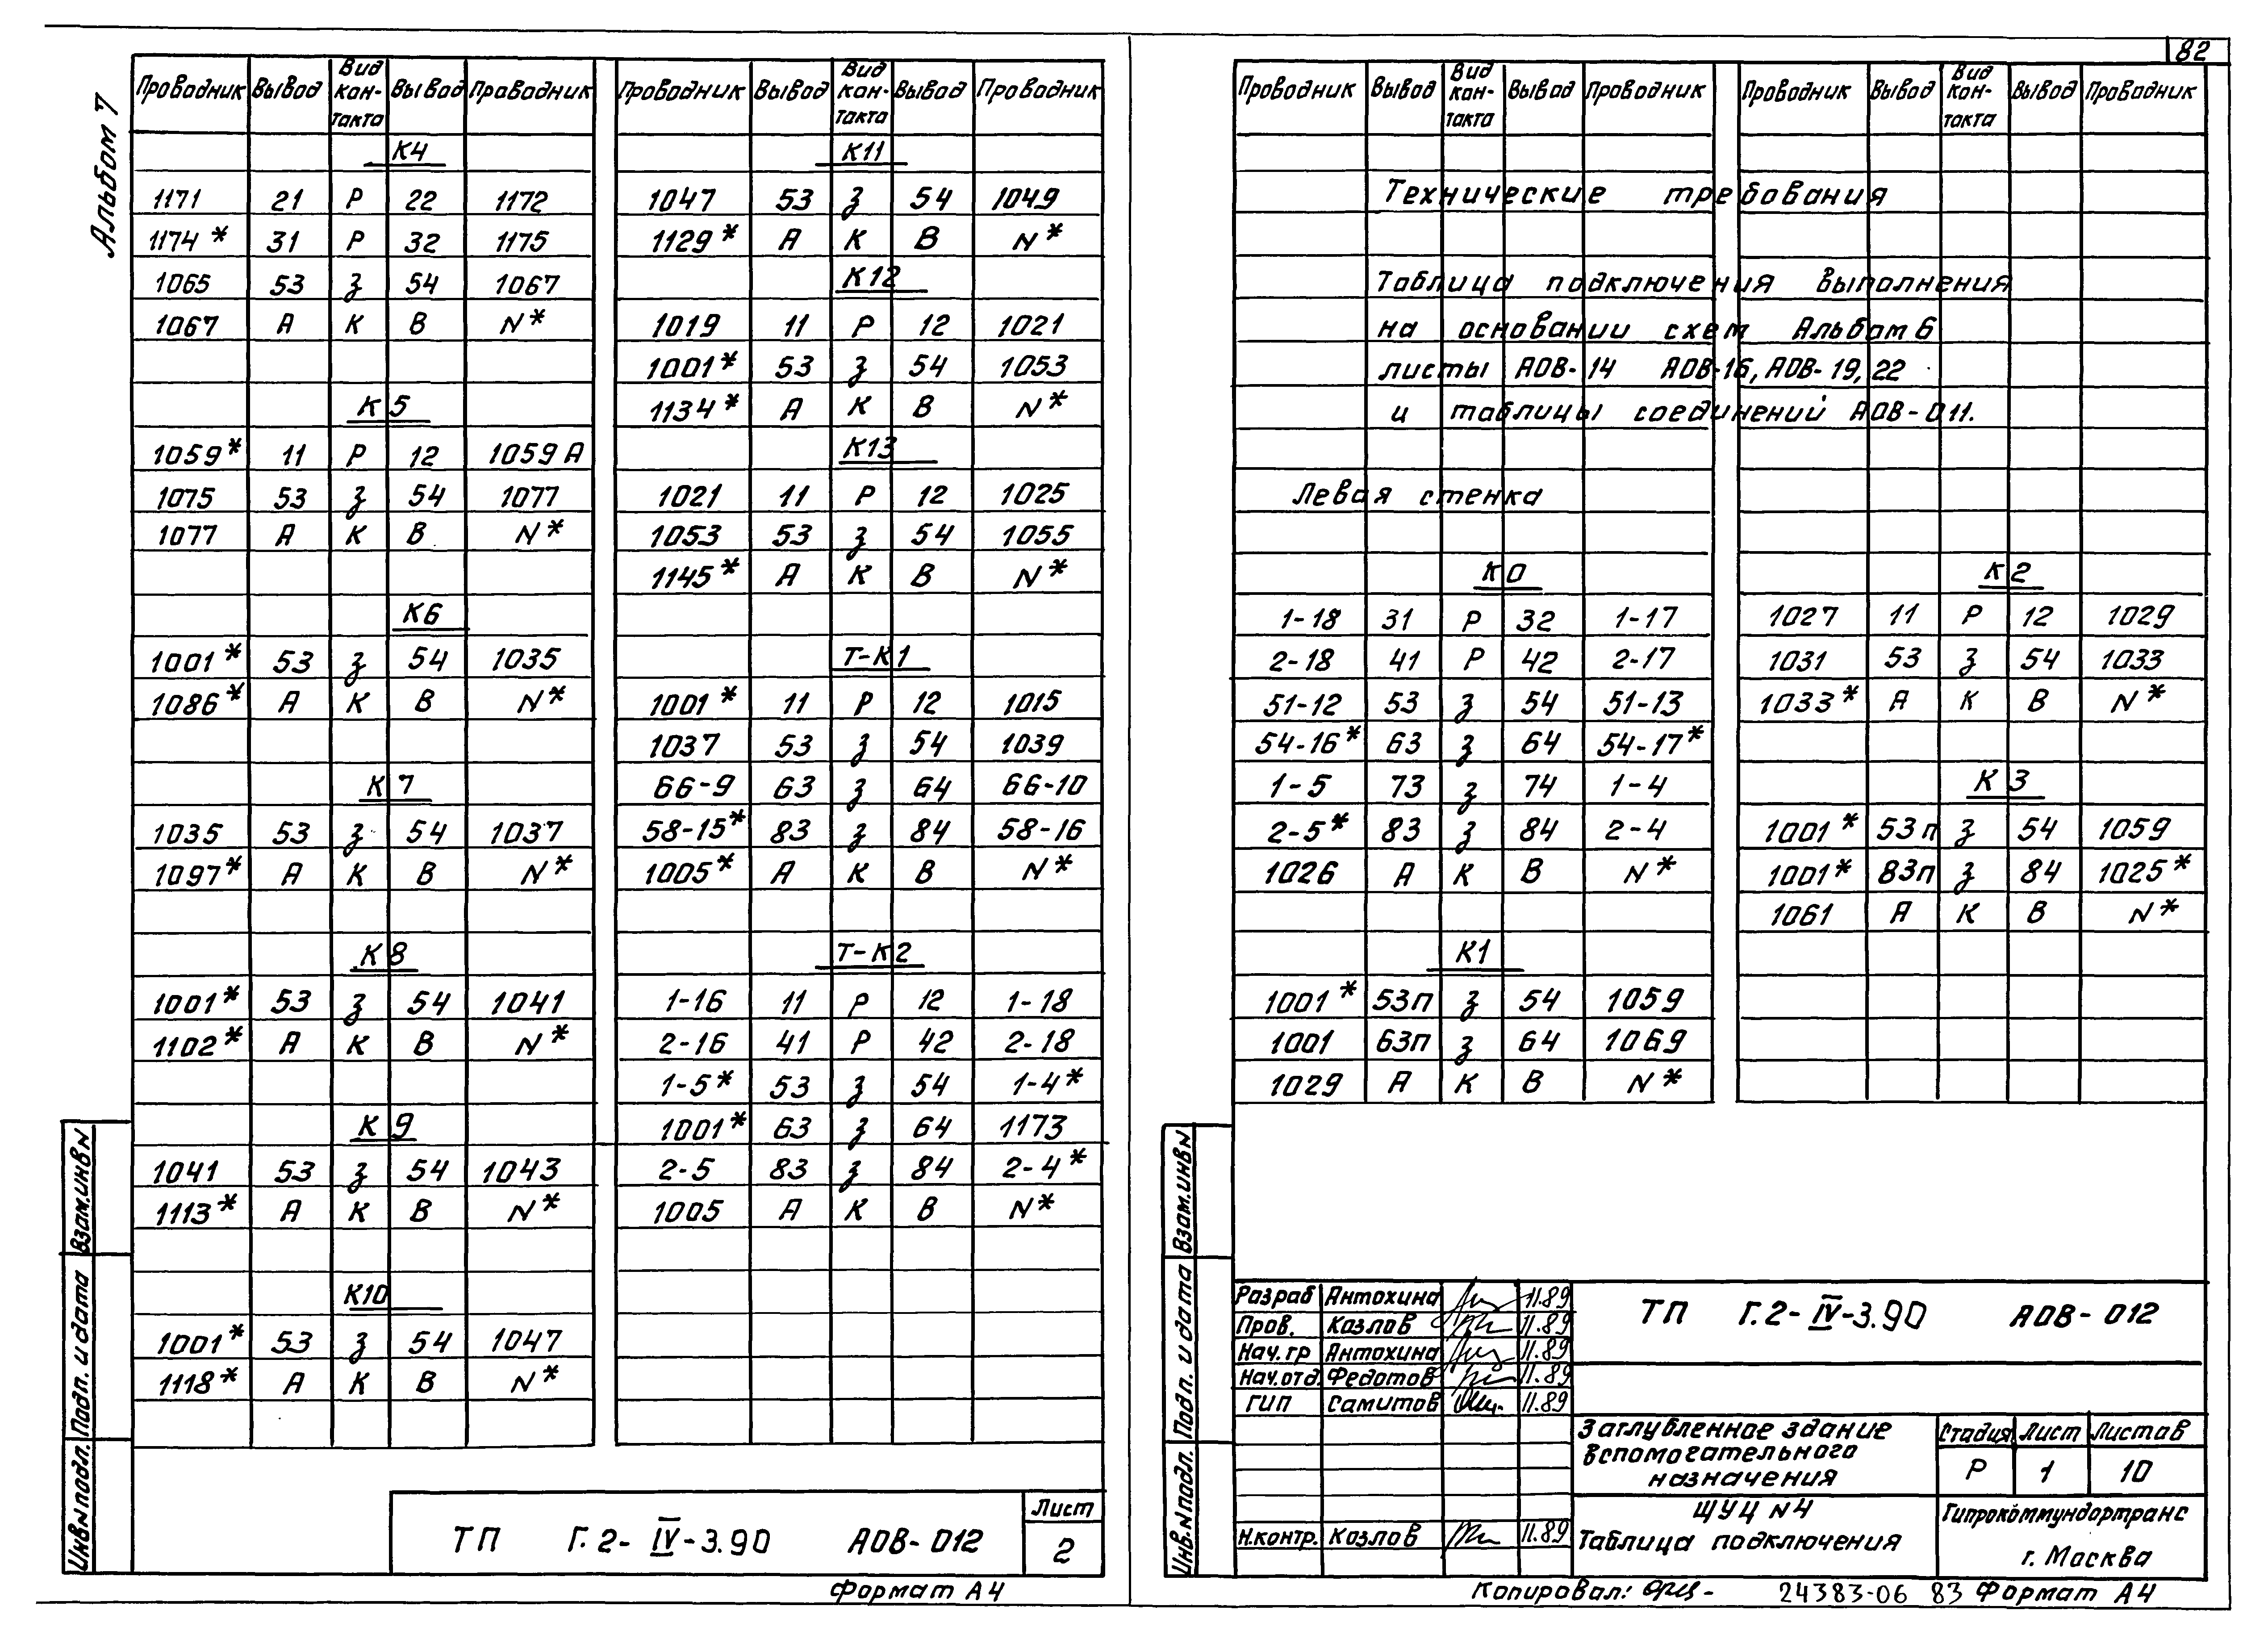 82
Альбом 7
Проводник Вывод Вид контакта Вывод Проводник
К4
1171 21 Р 22 1172
1174* 31 Р 32 1175
1065 53 З 54 1067
1067 А К В N*
К5
1059* 11 Р 12 1059А
1075 53 З 54 1077
1077 А К В N*
К6
1001* 53 З 54 1035
1086* А К В N*
К7
1035 53 З 54 1037
1097* А К В N*
К8
1001* 53 З 54 1041
1102* А К В N*
К9
1041 53 З 54 1043
1113* А К В N*
К10
1001* 53 З 54 1047
1118* А К В N*
Проводник Вывод Вид контакта Вывод Проводник
К11
1047 53 З 54 1049
1129* А К В N*
К12
1019 11 Р 12 1021
1001* 53 З 54 1053
1134* А К В N*
К13
1021 11 Р 12 1025
1053 53 З 54 1055
1145* А К В N*
Т-К1
1001* 11 Р 12 1015
1037 53 З 54 1039
66-9 63 З 64 66-10
58-15* 83 З 84 58-16
1005* А К В N*
Т-К2
1-16 11 Р 12 1-18
2-16 41 Р 42 2-18
1-5* 53 З 54 1-4*
1001* 63 З 64 1173
2-5 83 З 84 2-4*
1005 А К В N*
Взам.инв N
Подп. и дата
Инв N подл.
ТП Г.2-IV-3.90 АОВ-012
Лист
2
Формат А4
Проводник Вывод Вид контакта Вывод Проводник
Проводник Вывод Вид контакта Вывод Проводник
Технические требования
Таблица подключения выполнения
на основании схем Альбом 6
листы АОВ-14 АОВ-16, АОВ-19, 22
и таблицы соединений АОВ-011.
Левая стенка
К0
1-18 31 Р 32 1-17
2-18 41 Р 42 2-17
51-12 53 З 54 51-13
54-16* 63 З 64 54-17*
1-5 73 З 74 1-4
2-5* 83 З 84 2-4
1026 А К В N*
К1
1001* 53п З 54 1059
1001 63п З 64 1069
1029 А К В N*
К2
1027 11 Р 12 1029
1031 53 З 54 1033
1033* А К В N*
К3
1001* 53п З 54 1059
1001* 83п З 84 1025*
1061 А К В N*
Взам.инв N
Подп. и дата
Инв.N подл.
Разраб Антохина 11.89
Пров. Козлов 11.89
Нач.гр Антохина 11.89
Нач.отд. Федотов 11.89
ГИП Самитов 11.89
Н.контр. Козлов 11.89
ТП Г.2-IV-3.90 АОВ-012
Заглубленное здание
вспомогательного
назначения
Стадия Лист Листов
Р 1 10
ЩУЦ N4
Таблица подключения
Гипрокоммундортранс
г. Москва
Копировал: 24383-06 83 Формат А4